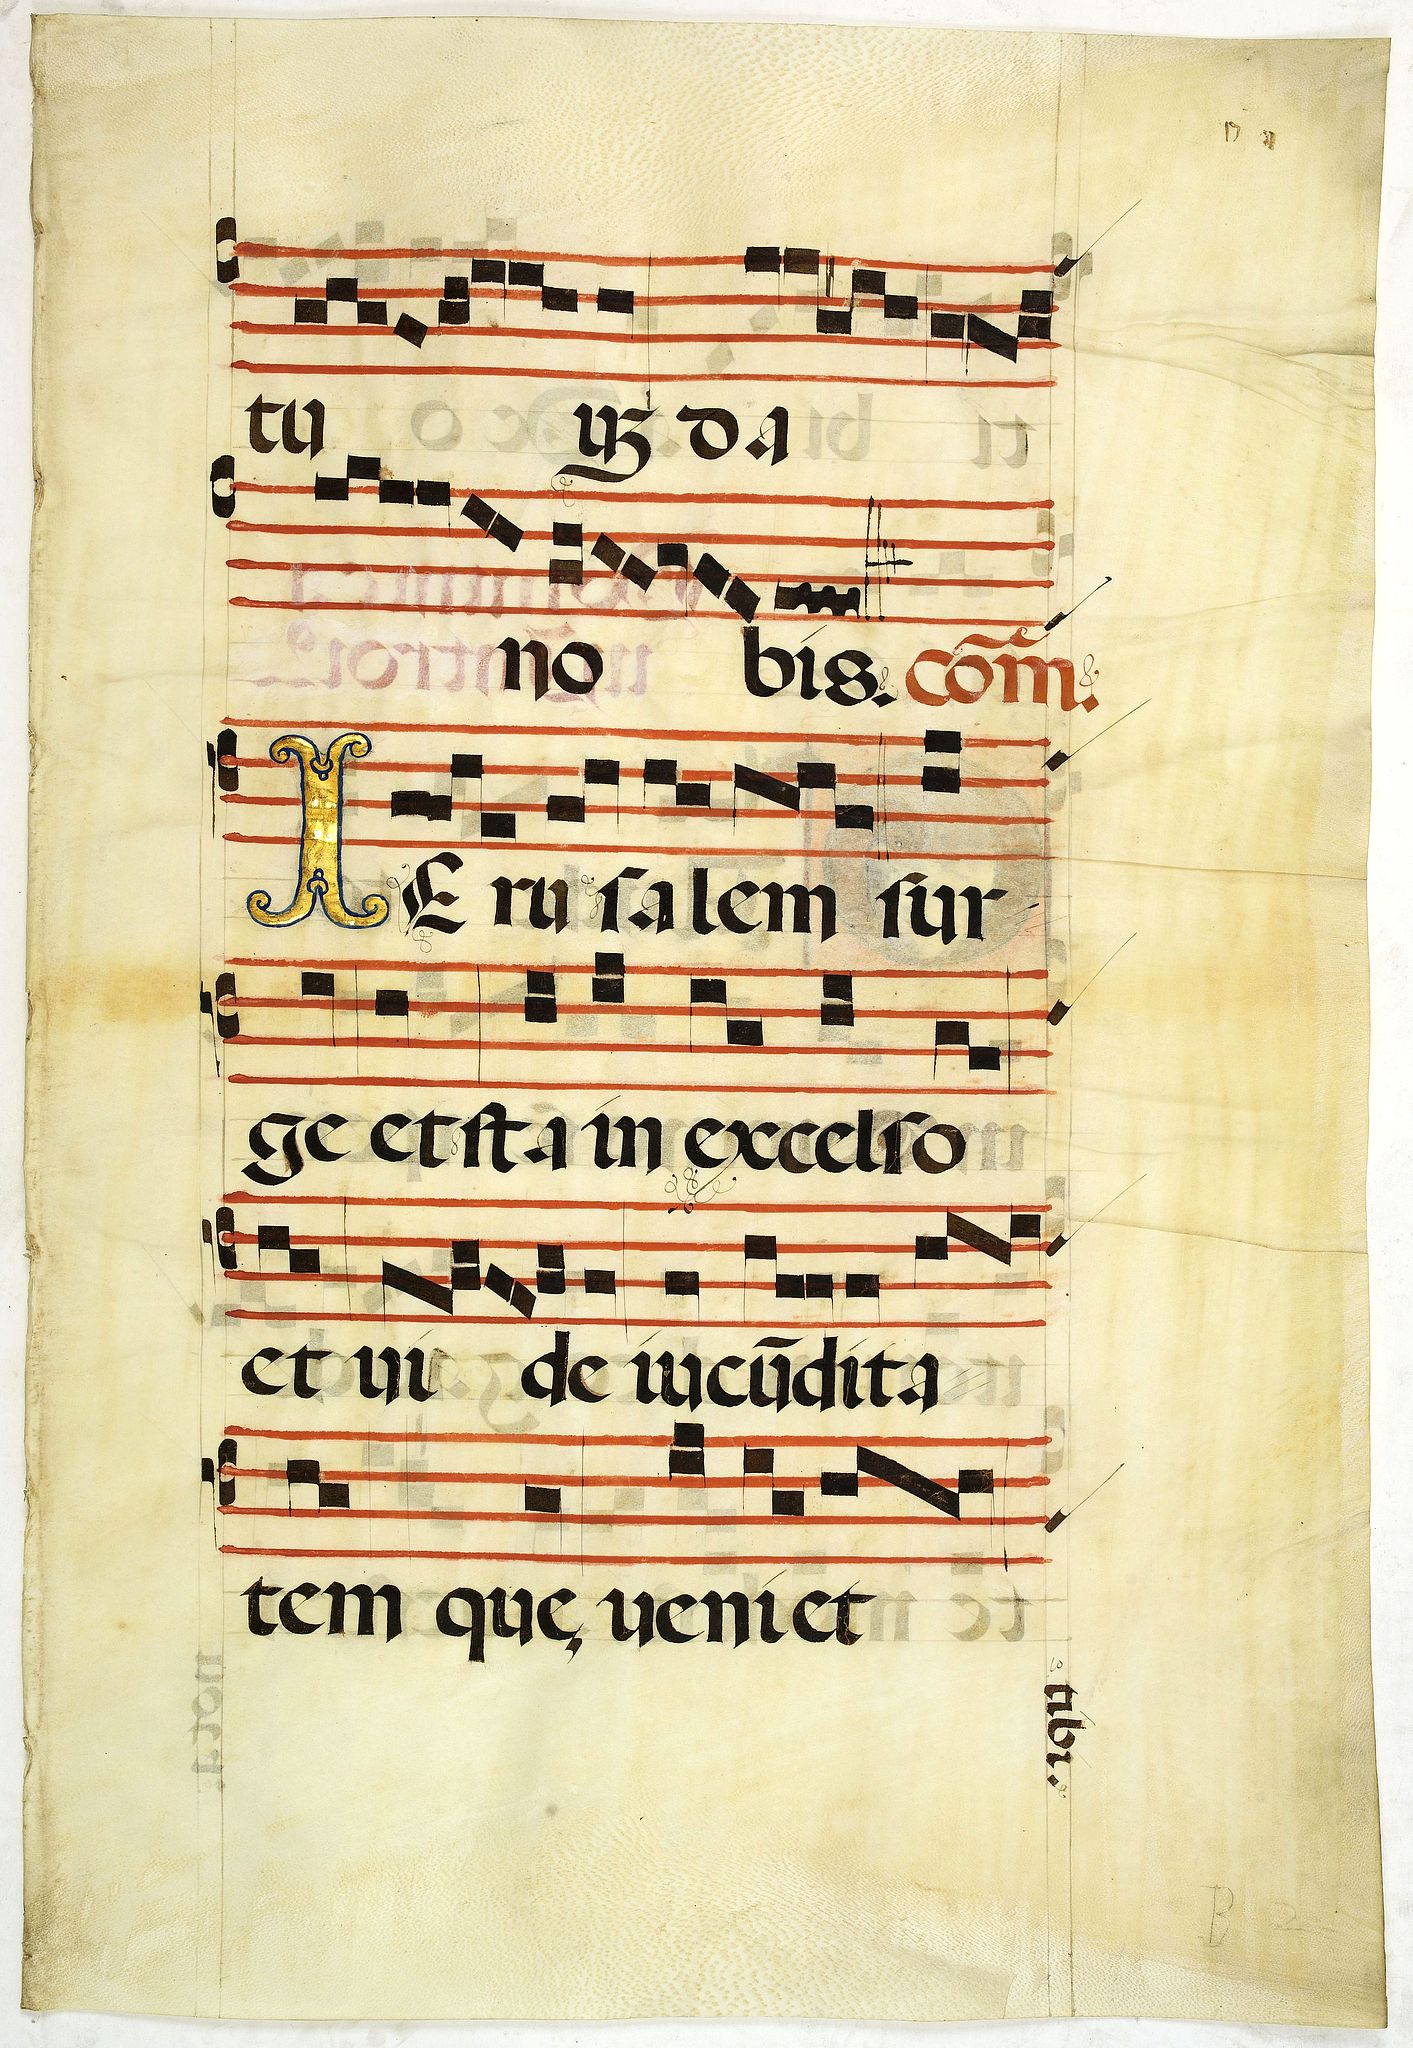 tuū da
no bis. cōm.
IErusalem sur
ge et sta in excelso
et ui de iucūdita
tem que, ueniet
tibi.